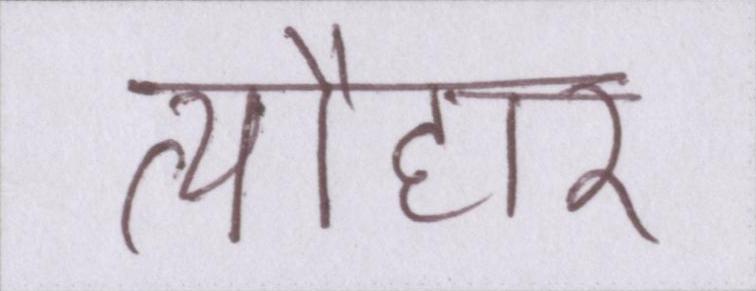 त्यौहार